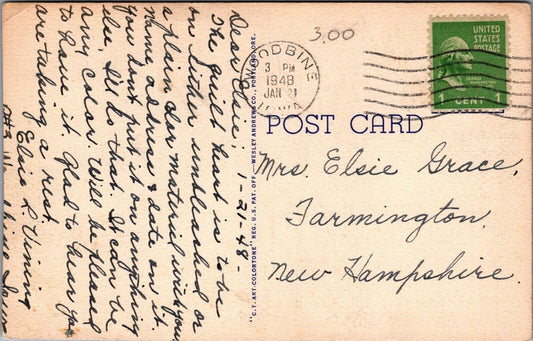 Dear Elsie; 1-21-48-
The quilt heart is to be
on either unbleached or
a plain color material with your
name address & date on it.
you don't put it on anything
else, I'll do that. It can be
any color. Will be pleased
to have it. Glad to hear you
are taking a rest.
Elsie R. Vining
"C.T. ART-COLORTONE" REG. U.S. PAT. OFF. WESLEY ANDREWS CO., PORTLAND, ORE.
3.00
WOODBINE
3 PM
1948
JAN 21
IOWA
UNITED
STATES
POSTAGE
1 CENT 1
POST CARD
Mrs. Elsie Grace,
Farmington,
New Hampshire.